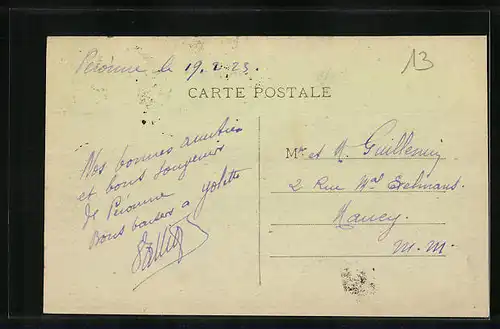 Peronne le 19.2.23.
13
CARTE POSTALE
Nos bonnes amitiés
et bons souvenirs
de Peronne
Bons baiser a Yolette
Mr et M. Guillemin
2 Rue Mal Exelmans.
Nancy.
M. M.